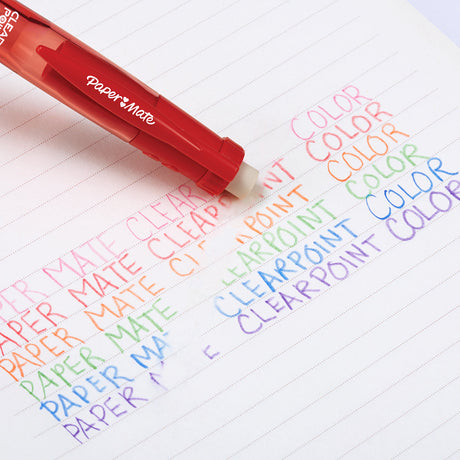 Paper Mate
PER MATE CLEAR COLOR
PAPER MATE CLEARPO NT COLOR
PAPER MATE C POINT COLOR
PAPER MATE CLEARPOINT COLOR
PAPER MA CLEARPOINT COLOR
PAPER M E CLEARPOINT COLOR